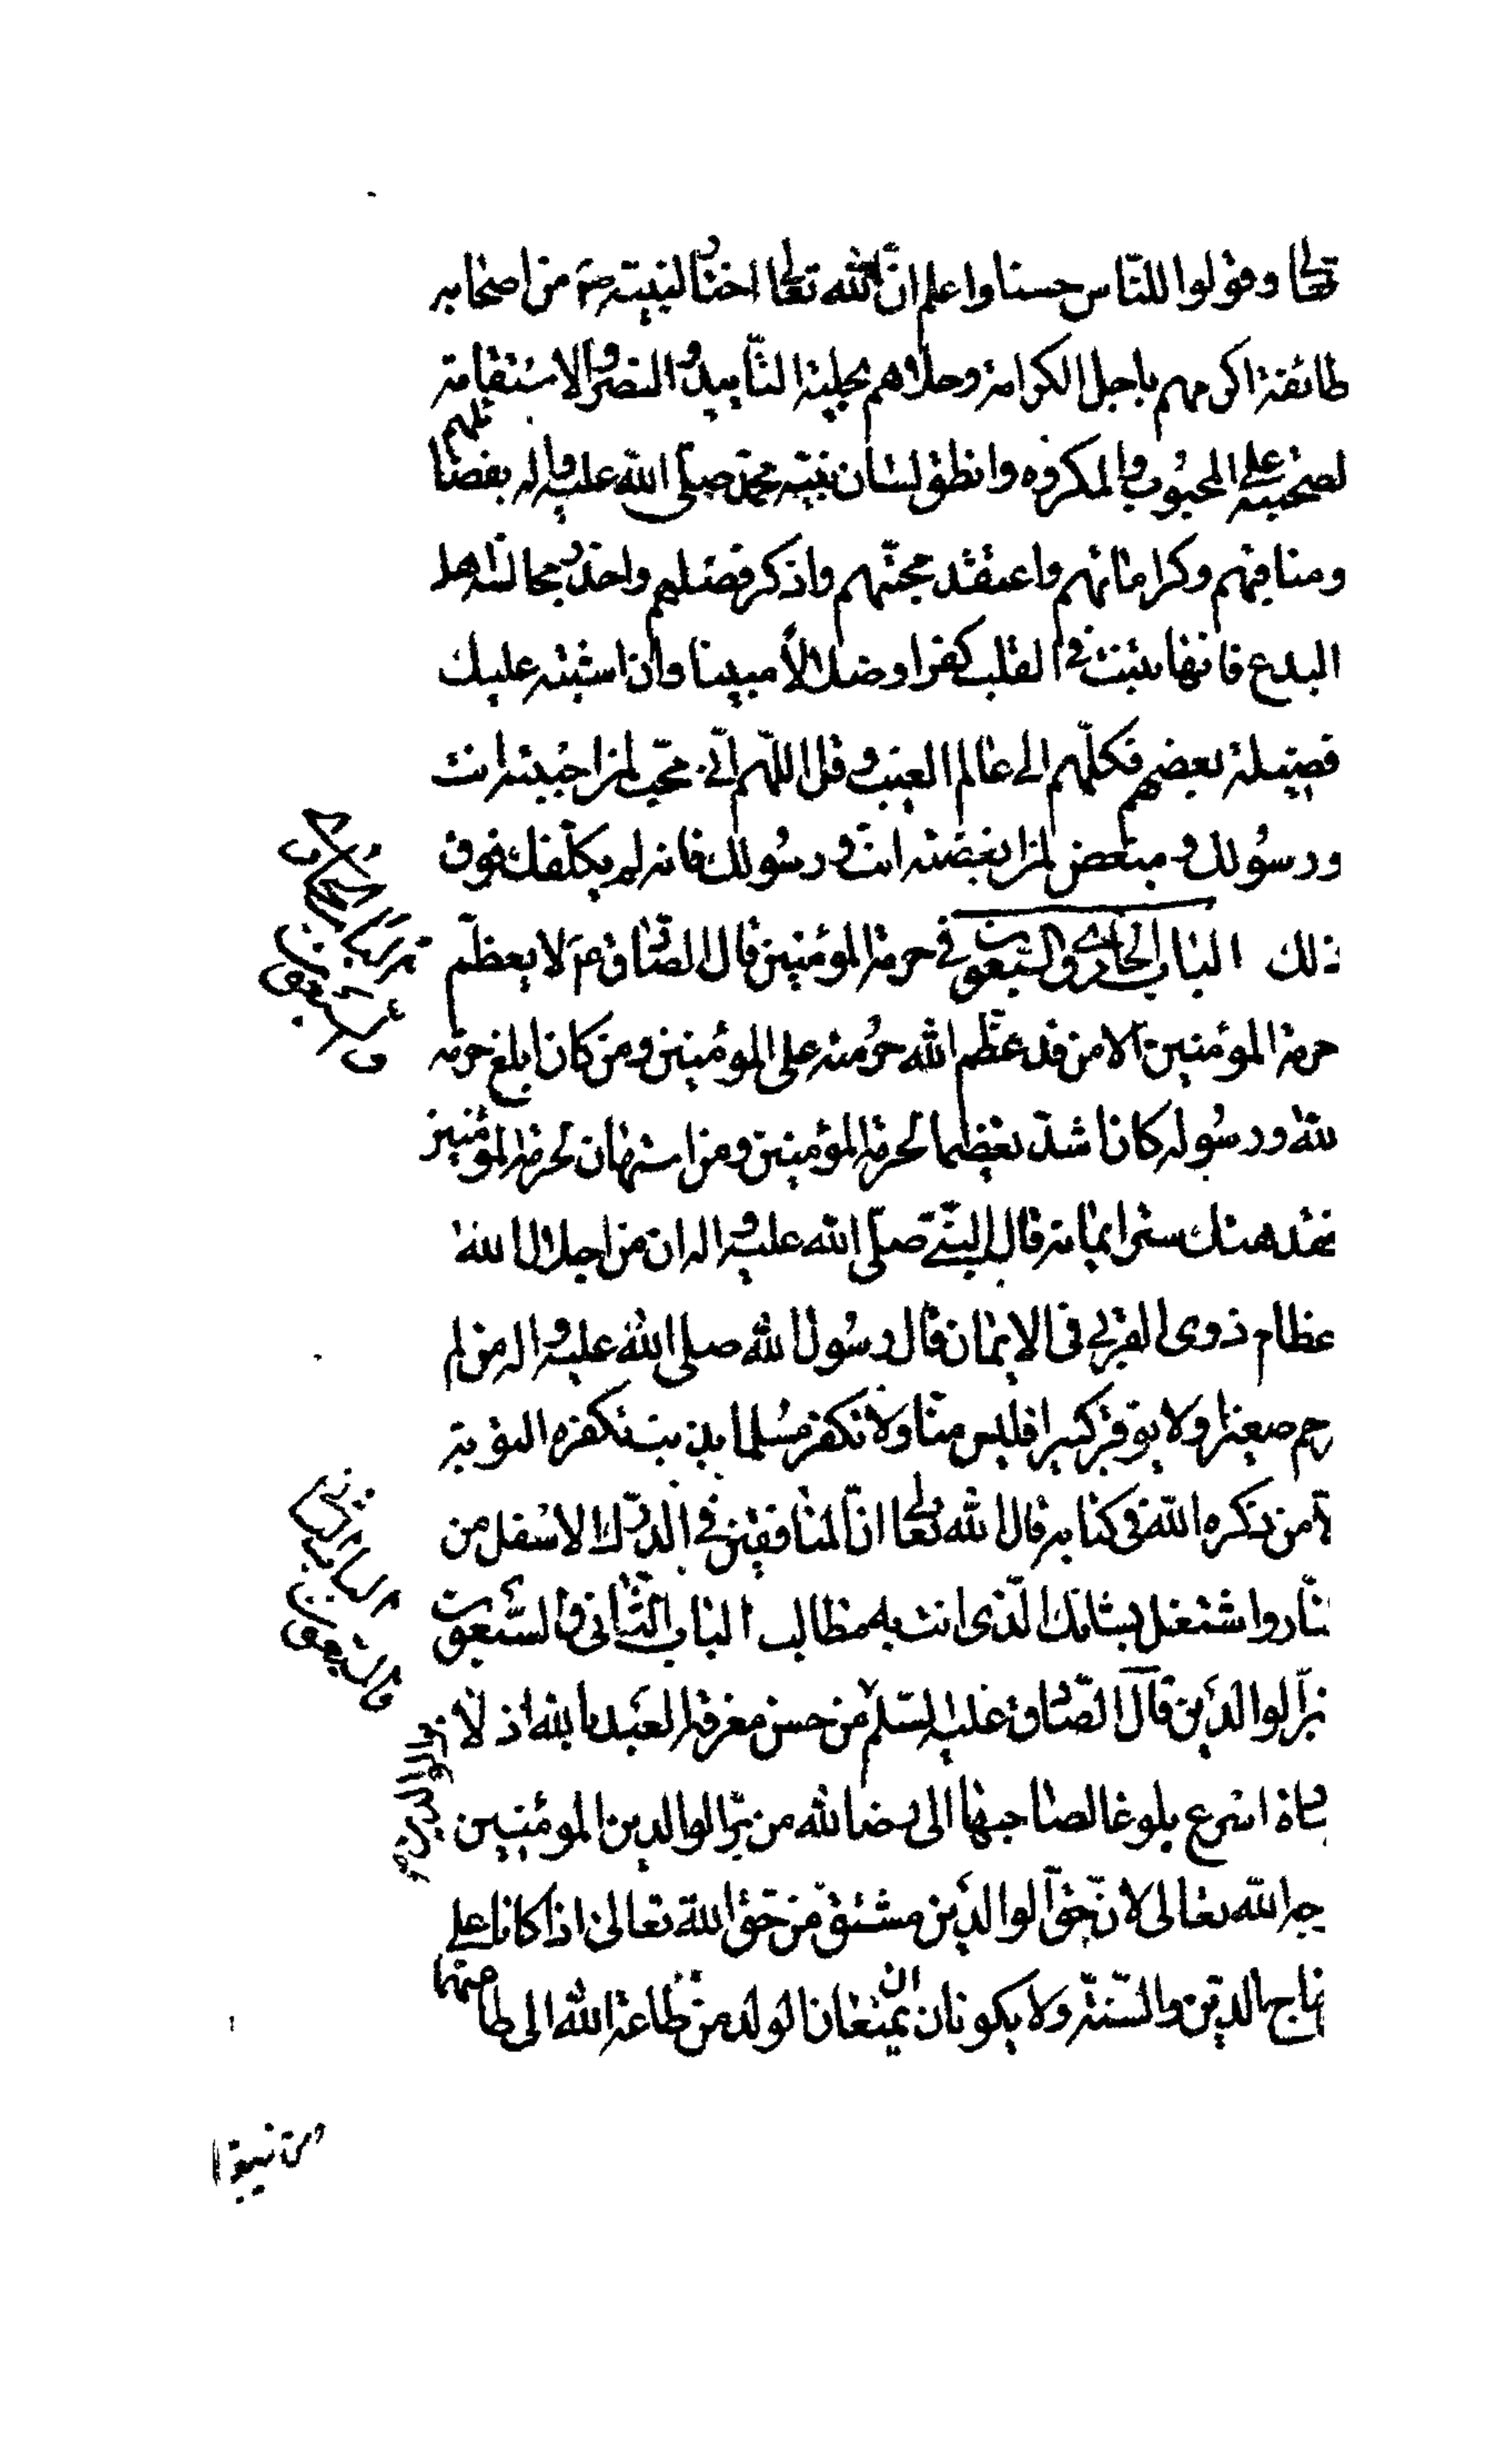 تعالى وقولوا للنّاس حسنا واعلم انّ الله تعالى اختار لنبيّه ص من اصحابه
طائفة اكرمهم باجل الكرامة وحلاهم بحلية التّاييد والنصر والاستقامة
لصحبته على المحبوب والمكروه وانطق لسان نبيّه محمّد صلّى الله عليه واله بفضائلهم
ومناقبهم وكراماتهم واعتقد محبّتهم واذكر فضلهم واحذر مجالسة اهل
البدع فانها تنبت في القلب كفرا وضلالاً مبينا وان اشتبه عليك
فضيلة بعضهم فكلّهم الى عالم الغيب وقل اللّهم انّي محبّ لمن احببته انت
ورسولك ومبغض لمن ابغضته انت ورسولك فانه لم يكلّفك فوق
ذلك الباب الحادي والسّبعون في حرمة المؤمنين قال الصّادق ع لا يعظّم
حرمة المؤمنين الا من قد عظّم الله حرمته على المؤمنين ومن كان ابلغ حرمة
لله ورسوله كان اشدّ تعظيما لحرمة المؤمنين ومن استهان لحرمة المؤمنين
فقد هتك ستر ايمانه قال النّبيّ صلّى الله عليه واله ان من اجلال الله
عظام ذوى القربى فى الايمان قال رسول الله صلى الله عليه واله من لم
رحم صغيرا ولا يوقر كبيرا فليس منّا ولا تكفر مسلما بذنب تكفره التوبة
لاّ من ذكره الله فى كتابه قال الله تعالى انّ المنافقين في الدّرك الاسفل من
نّار واشتغل بشانك الّذى انت به مطالب الباب الثّانى والسّبعون
برّ الوالدين قال الصّادق عليه السّلم من حسن معرفة العبد بالله اذ لا
بادة اسرع بلوغا لصاحبها الى رضا الله من برّ الوالدين المؤمنين
جه الله تعالى لانّ حقّ الوالدين مشتق من حق الله تعالى اذا كانا على
هاج الدين والسّنّة ولا يكونان يمنعان الولد من طاعة الله الى طاعتهما
الباب الثاني
والسبعون